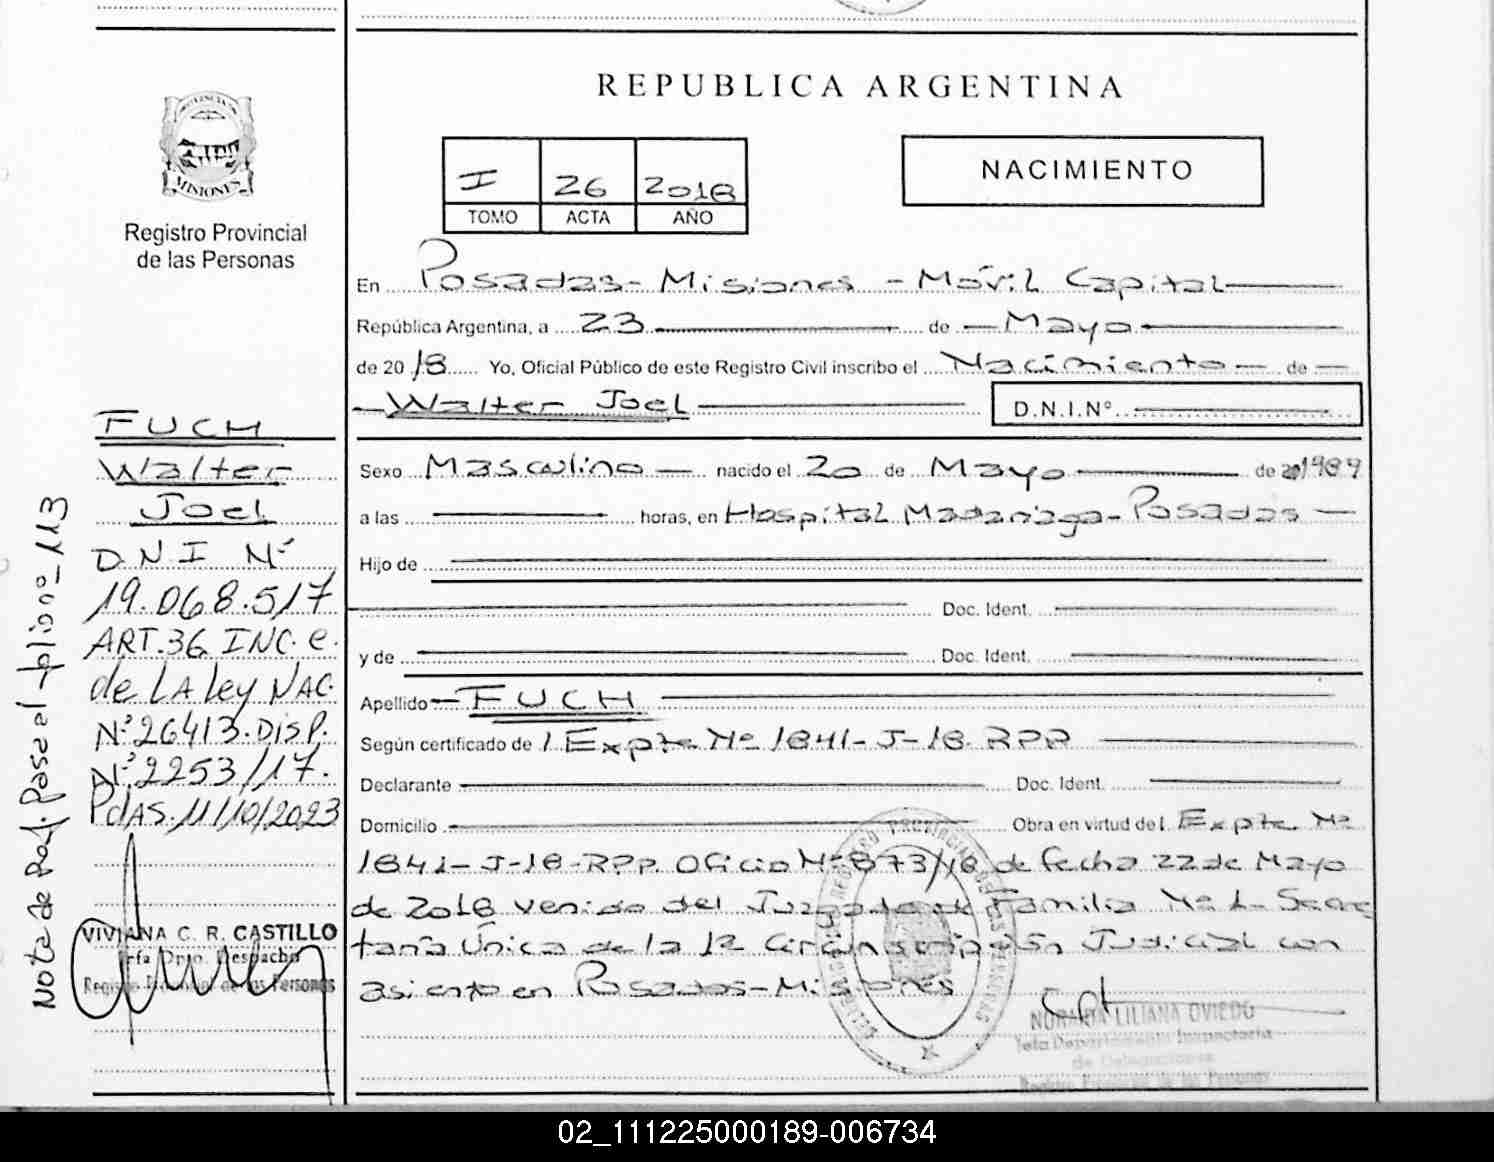 REPUBLICA ARGENTINA
PROVINCIA
MISIONES
Registro Provincial
de las Personas
I 26 2018
TOMO ACTA AÑO
NACIMIENTO
En Posadas - Misiones - Móvil Capital
República Argentina, a 23 de Mayo
de 2018 Yo, Oficial Público de este Registro Civil inscribo el Nacimiento de
Walter Joel D.N.I.Nº
Sexo Masculino nacido el 20 de Mayo de 1989
a las horas, en Hospital Madariaga - Posadas
Hijo de
Doc. Ident.
y de Doc. Ident.
Apellido FUCH
Según certificado de l Expte Nº 1841-J-18-RPP
Declarante Doc. Ident.
Domicilio Obra en virtud del Expte Nº
1841-J-18-RPP. Oficio Nº 873/18 de fecha 22 de Mayo
de 2018 venido del Juzgado de Familia Nº 1 - Secre
taría Única de la 1ª Circunscripción Judicial con
asiento en Posadas - Misiones
NORMA LILIANA OVIEDO
Jefa Departamento Inspectoría
de Delegaciones
Registro Provincial de las Personas
FUCH
Walter
Joel
D.N.I Nº
19.068.517
ART.36 INC. e.
de LA Ley NAC.
Nº 26413. DISP.
Nº 2253/17.
PdAS. 11/10/2023
VIVIANA C. R. CASTILLO
Jefa Dpto. Despacho
Registro Provincial de las Personas
Nota de Ref. Pasa el folio nº 113
02_111225000189-006734